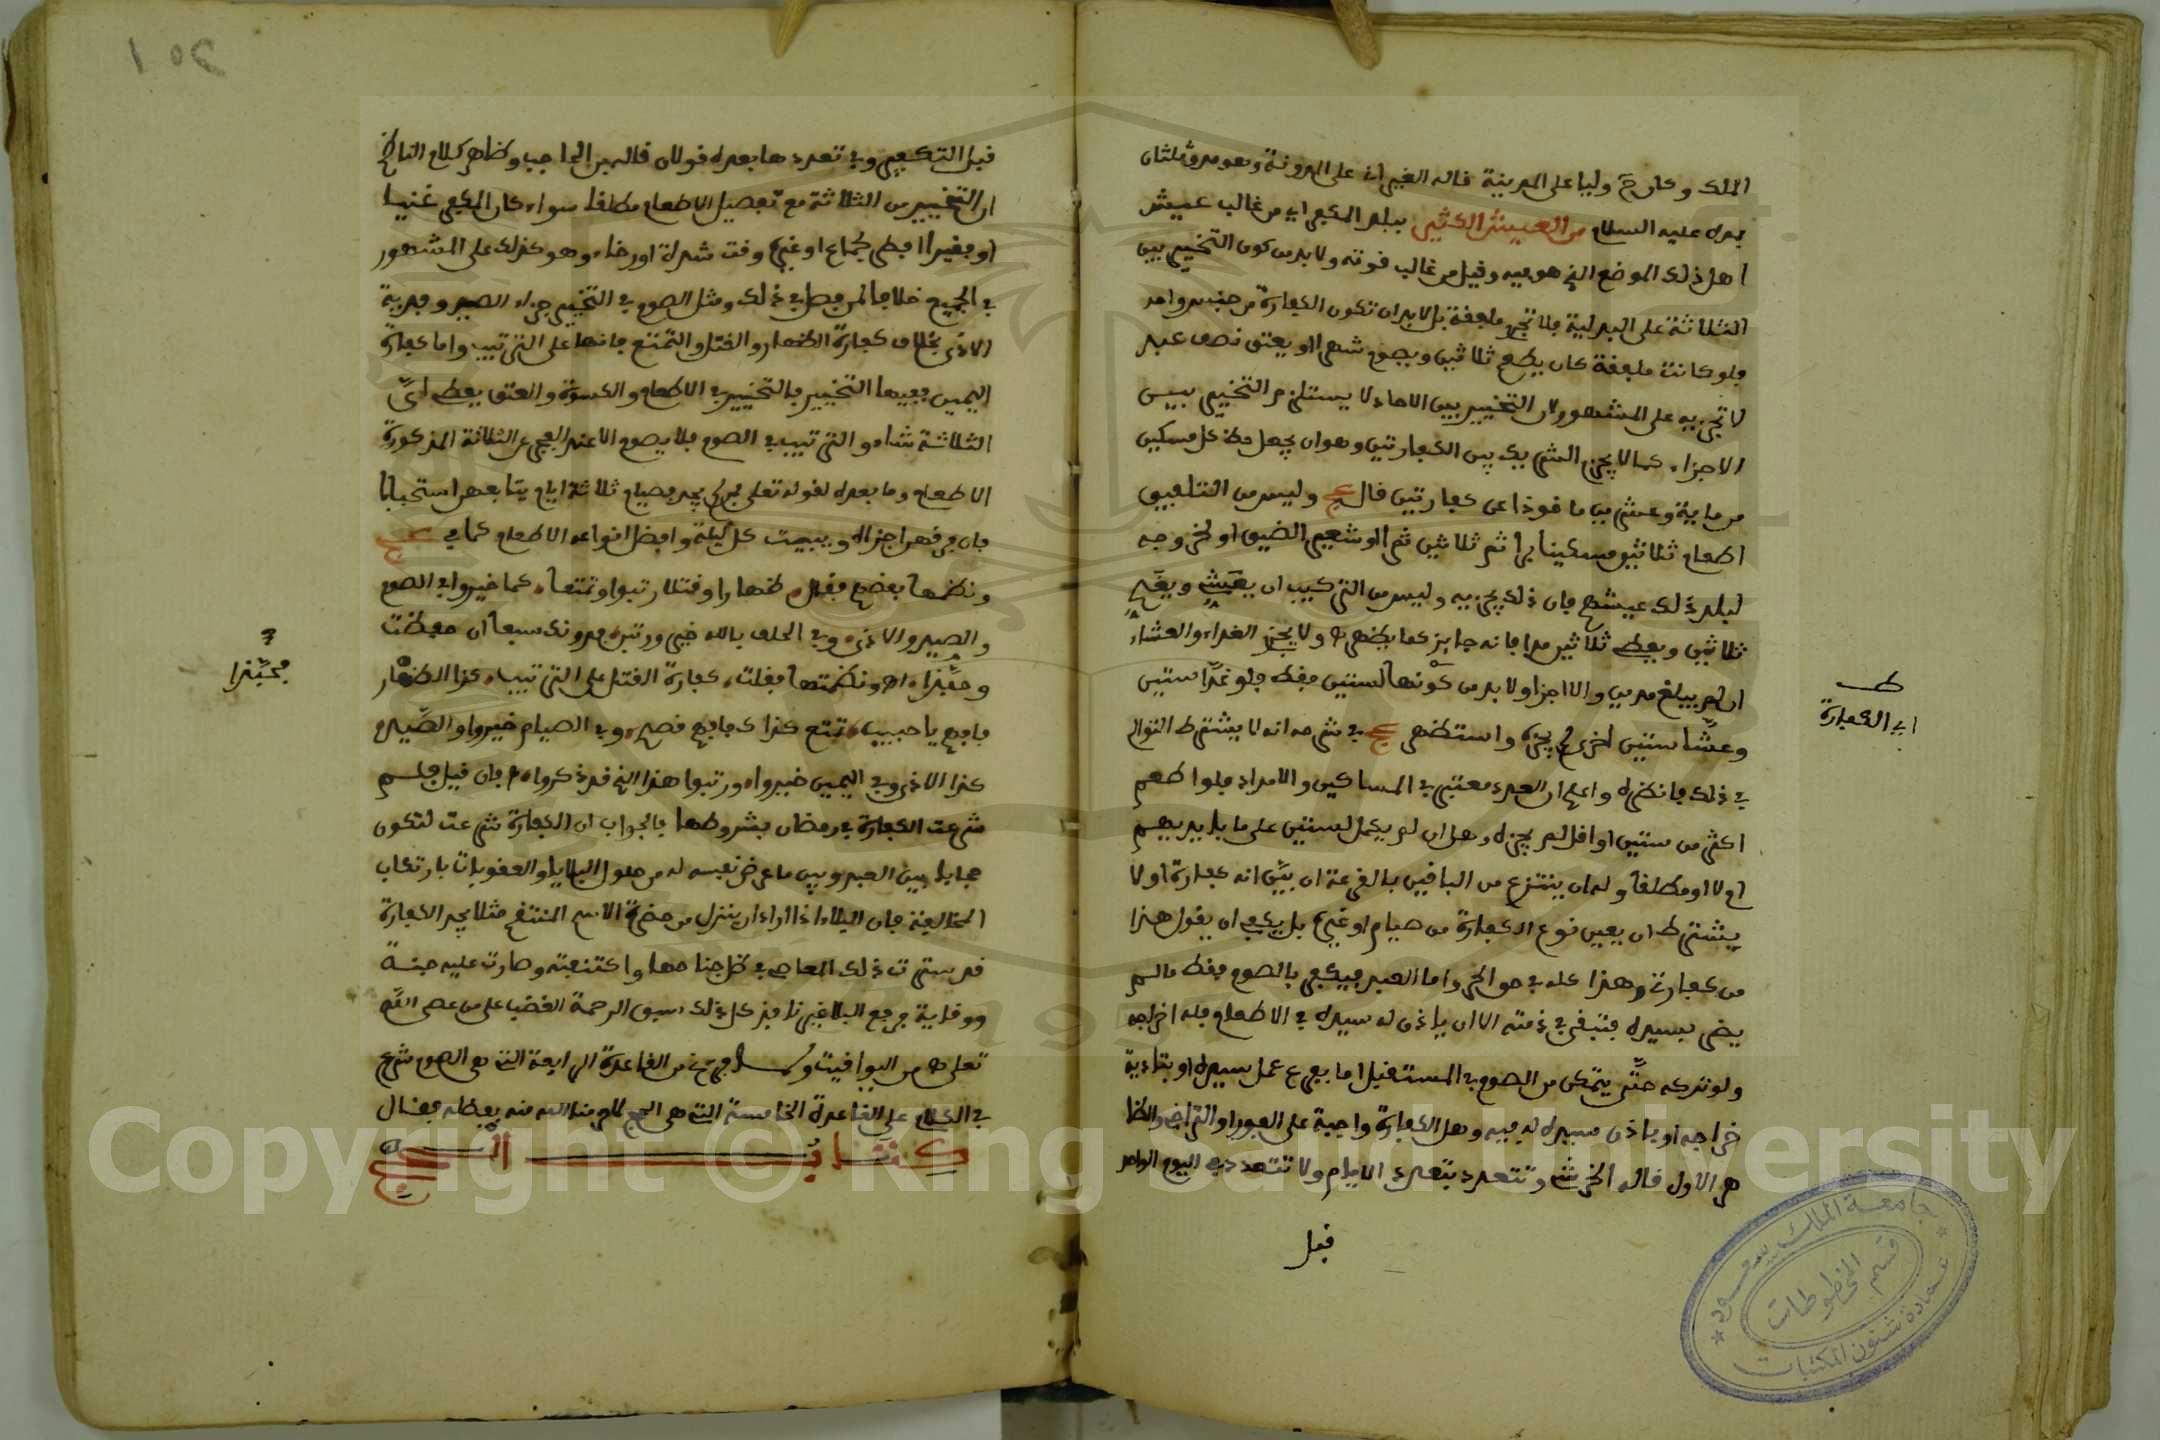 الملك وكان ثم واليا على المدينة قاله القيرواني على المدونة وهو مد وثلثان
بمده عليه السلام من العيش الكثير ببلد المكفر اي من غالب عيش
اهل ذلك الموضع الذي هو فيه وقيل من غالب قوته ولا بد من كون التخيير بين
الثلاثة على البدلية فلا تجزئ ملفقة بل لا بد ان تكون الكفارة من جنس واحد
فلو كانت ملفقة كان يطعم ثلاثين ويصوم شهرا او يعتق نصف عبد
لا تجزيه على المشهور لان التخيير بين الاحاد لا يستلزم التخيير بين
الاجزاء كما لا يجزئ التشريك بين الكفارتين وهو ان يجعل حظ كل مسكين
من ماية وعشرين ماخوذا عن كفارتين قال عج وليس من التلفيق
اطعام ثلاثين مسكينا برا ثم ثلاثين تمرا او شعيرا لضيق او لخروجه
لبلد ذلك عيشهم فان ذلك يجزيه وليس من التركيب ان يعشي ويغدي
ثلاثين ويعطي ثلاثين مدا فانه جايز كما يظهر ولا يجزئ الغداء والعشاء
ان لم يبلغ مدين والا اجزا ولا بد من كونها لستين فقط فلو غدا ستين
وعشا ستين اخرى لم يجزه واستظهر عج في شرحه انه لا يشترط التوالي
في ذلك فانظره واعلم ان العدد معتبر في المساكين والامداد فلو اطعم
اكثر من ستين او اقل لم يجزه وهل ان لم يكمل لستين على ما بايديهم
اولا او مطلقا وله ان ينتزع من الباقين بالقرعة ان بين انه كفارة او لا
يشترط ان يعين نوع الكفارة من صيام او غيره بل يكفي ان يقول هذا
من كفارتي وهذا كله في حق الحر واما العبد فيكفر بالصوم فقط ما لم
يضر بسيده فتبقى في ذمته الا ان ياذن له سيده في الاطعام فله اخراجه
ولو تركه حتى يتمكن من الصوم في المستقبل اما بفراغ عمل سيده او بتادية
خراجه او ياذن سيده له فيه وهل الكفارة واجبة على الفور او التراخي والظا
هر الاول قاله الخرشي وتتعدد بتعدد الايام ولا تتعدد في اليوم الواحد
قبل
ط
اي الكفارة
قبل التكفير وفي تعددها بعده قولان قاله بن الحاجب وظاهر كلام الناظم
ان التخيير من الثلاثة مع تفضيل الاطعام مطلقا سواء كان المكفر غنيا
او فقيرا افطر بجماع او غيره وقت شدة او رخاء وهو كذلك على المشهور
في الجميع خلافا لمن فصل في ذلك ومثل الصوم في التخيير جزاء الصيد وفدية
الاذى بخلاف كفارة الظهار والقتل والتمتع فانها على الترتيب واما كفارة
اليمين ففيها التخيير فالتخيير في الاطعام والكسوة والعتق يعطي اي
الثلاثة شاء والترتيب في الصوم فلا يصوم الا عند العجز عن الثلاثة المذكورة
الاطعام وما بعده لقوله تعلى فمن لم يجد فصيام ثلاثة ايام يتابعهن استحبابا
فان فرقهن اجزاه ويبيت كل ليلة وافضل انواعه الاطعام كما في عج
ونظمها بعضهم فقال ظهارا وقتلا رتبوا وتمتعا كما خيروا في الصوم
والصيد والاذى وفي الحلف بالله خير ورتبن فدونك سبعا ان حفظت
وحيدا اه ونظمتها فقلت كفارة القتل على الترتيب كذا الظهار
فافهم يا حبيب تمتع كذاك فافهم قصدي وفي الصيام خيروا والصيد
كذا الاذى وفي اليمين خيروا ورتبوا هذا الذي قد ذكروا فان قيل فلم
شرعت الكفارة في رمضان بشروطها فالجواب ان الكفارة شرعت لتكون
حجابا بين العبد وبين ما عرض نفسه له من حلول البلايا والعقوبات بارتكاب
المخالفة فان البلاء اذا اراد ان ينزل من حضرة الاسم المنتقم مثلا يجد الكفارة
قد سترت ذلك العاصي في ظل جناحها واكتنفته وصارت عليه جنة
ووقاية فرجع البلا غير نافذ كل ذلك سبق الرحمة الغضب على من عصى الله
تعلى ط من اليواقيت ولما فرغ من القاعدة الرابعة التي هي الصوم شرع
في الكلام على القاعدة الخامسة التي هي الحج لمن منا الله منه بفضله فقال
كتاب الحج
مجيدا